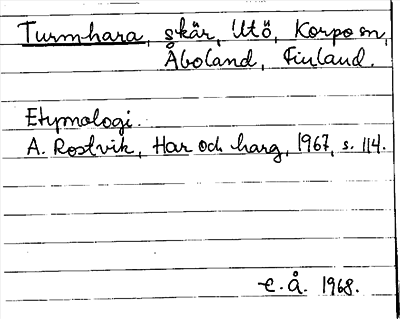 Turmhara, skär, Utö, Korpo sn,
Åboland, Finland.
Etymologi.
A. Rostvik, Har och harg, 1967, s. 114.
E.Å. 1968.